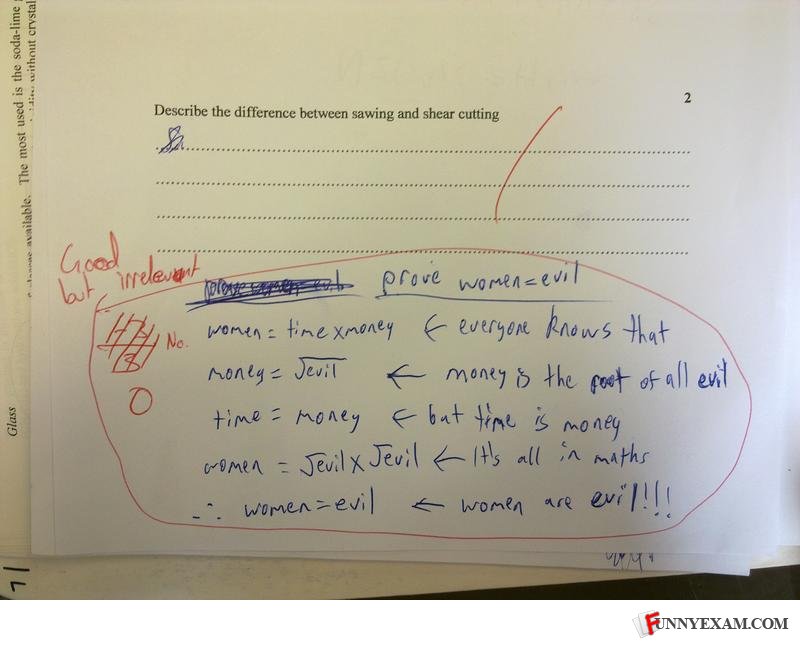 2
Describe the difference between sawing and shear cutting
Good
but irrelevant
prove women = evil
No. women = time x money ← everyone knows that
money = √evil ← money is the root of all evil
0
time = money ← but time is money
women = √evil x √evil ← It's all in maths
∴ women = evil ← women are evil!!!
The most used is the soda-lime
without crystal
Glass
FUNNYEXAM.COM